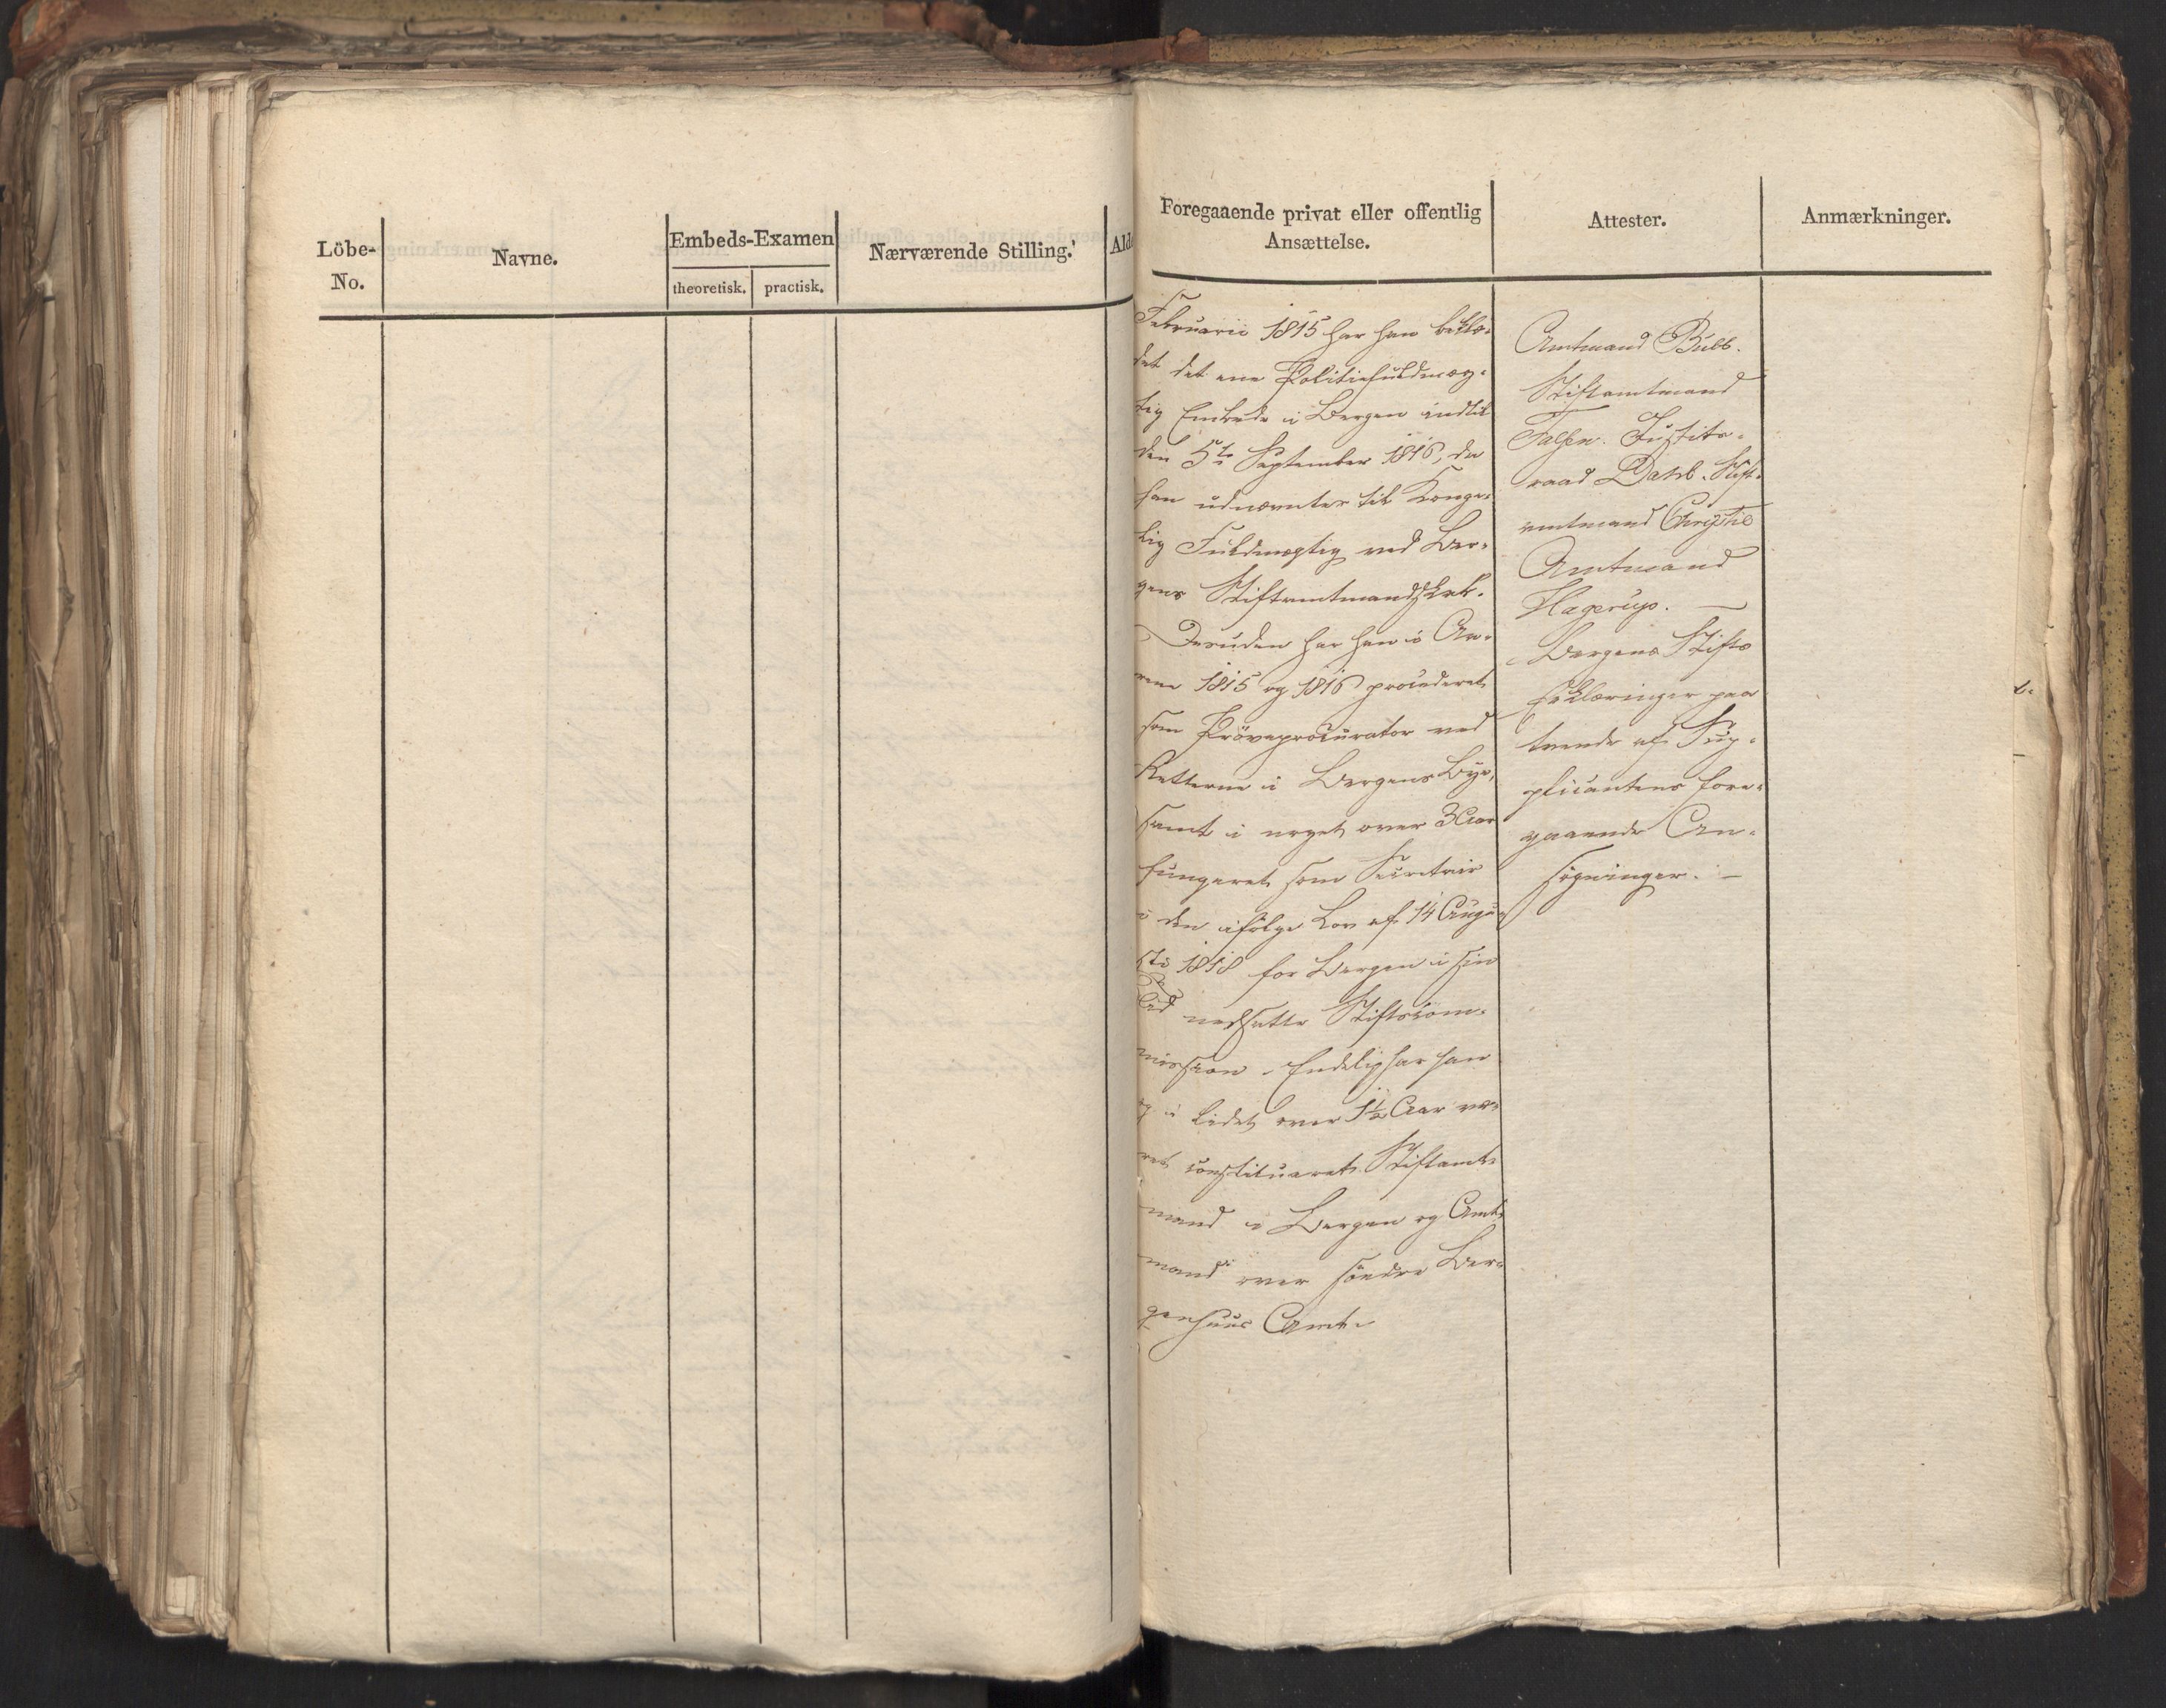 Löbe-
No.
Navne.
Embeds-Examen
theoretisk.
practisk.
Nærværende Stilling.
Alde
Foregaaende privat eller offentlig
Ansættelse.
Attester.
Anmærkninger.
Februarii 1815 har han beklæ-
det det ene Politiefuldmæg-
tig Embede i Bergen indtil
den 5te September 1816, da
han udnævntes til Konge-
lig Fuldmægtig ved Ber-
gens Stiftamtmandskab.
Desuden har han i Aa-
rene 1815 og 1816 procederet
som Prøveprocurator ved
Retterne i Bergens Bye,
samt i noget over 3 Aar
fungeret som Secretair
i den ifølge Lov af 14 Augu-
sti 1818 for Bergen i sin
Tid nedsatte Stiftscom-
mission. Endelig har han
og i lidet over 1½ Aar væ-
ret constitueret Stiftamt-
mand i Bergen og Amt-
mand over søndre Ber-
genhuus Amt.
Amtmand Bull.
Stiftamtmand
Falsen. Justits-
raad Dahl. Stift-
amtmand Christie
Amtmand
Hagerup. —
Bergens Stifts
Erklæringer paa
tvende af Sup-
plicantens fore-
gaaende An-
søgninger. —